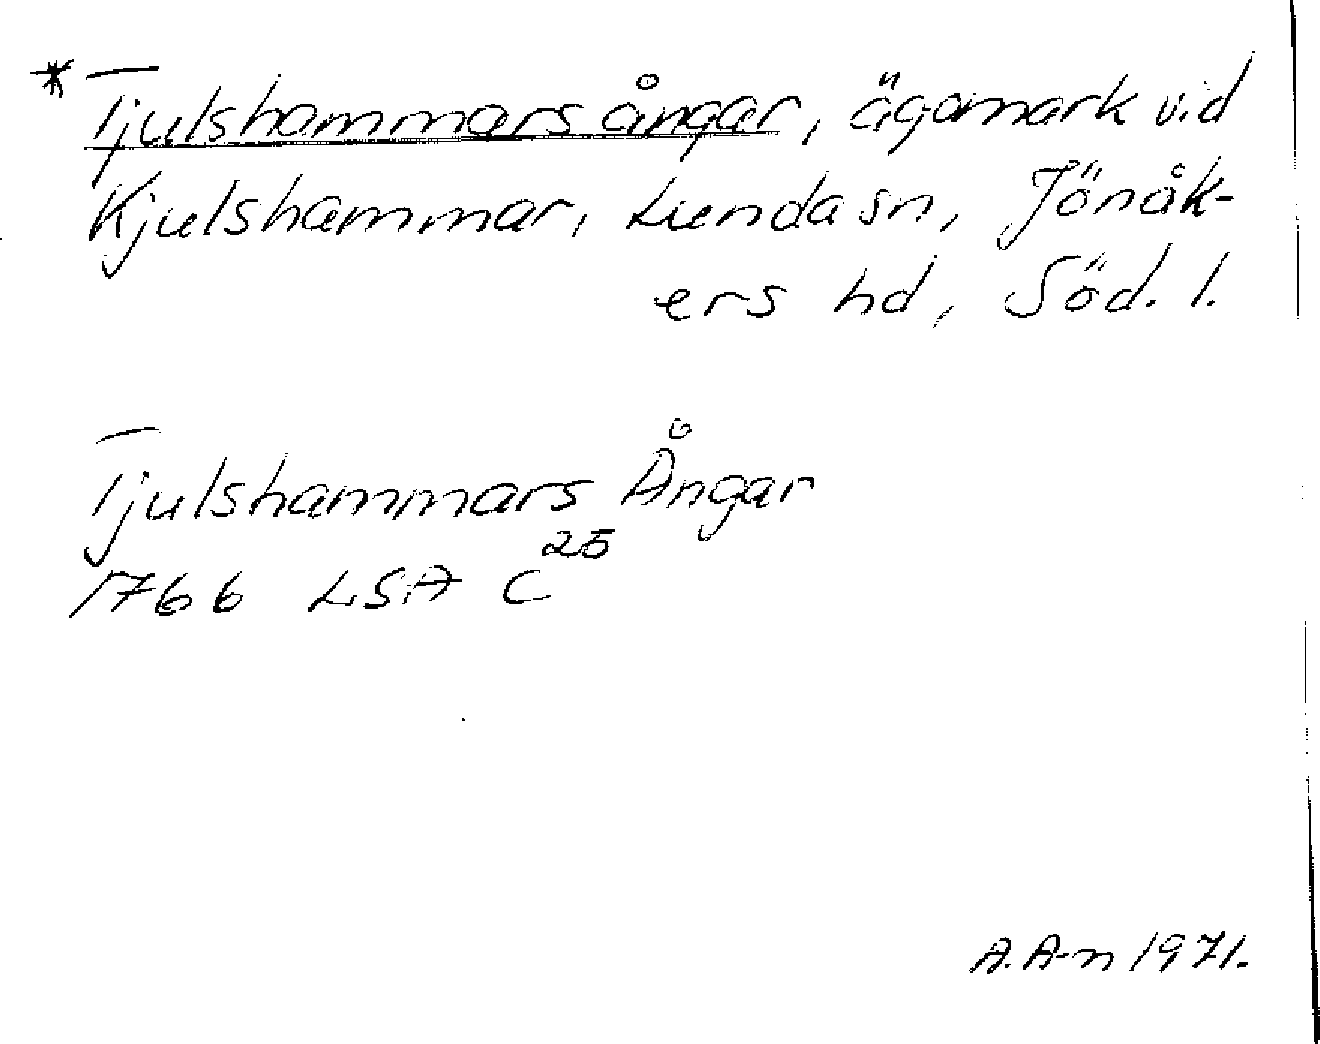 * Tjulshammars ångar, ägomark vid
Kjulshammar, Lunda sn, Jönåk-
ers hd, Söd. l.
Tjulshammars Ångar
1766 LSA C25
A. A-n 1971.